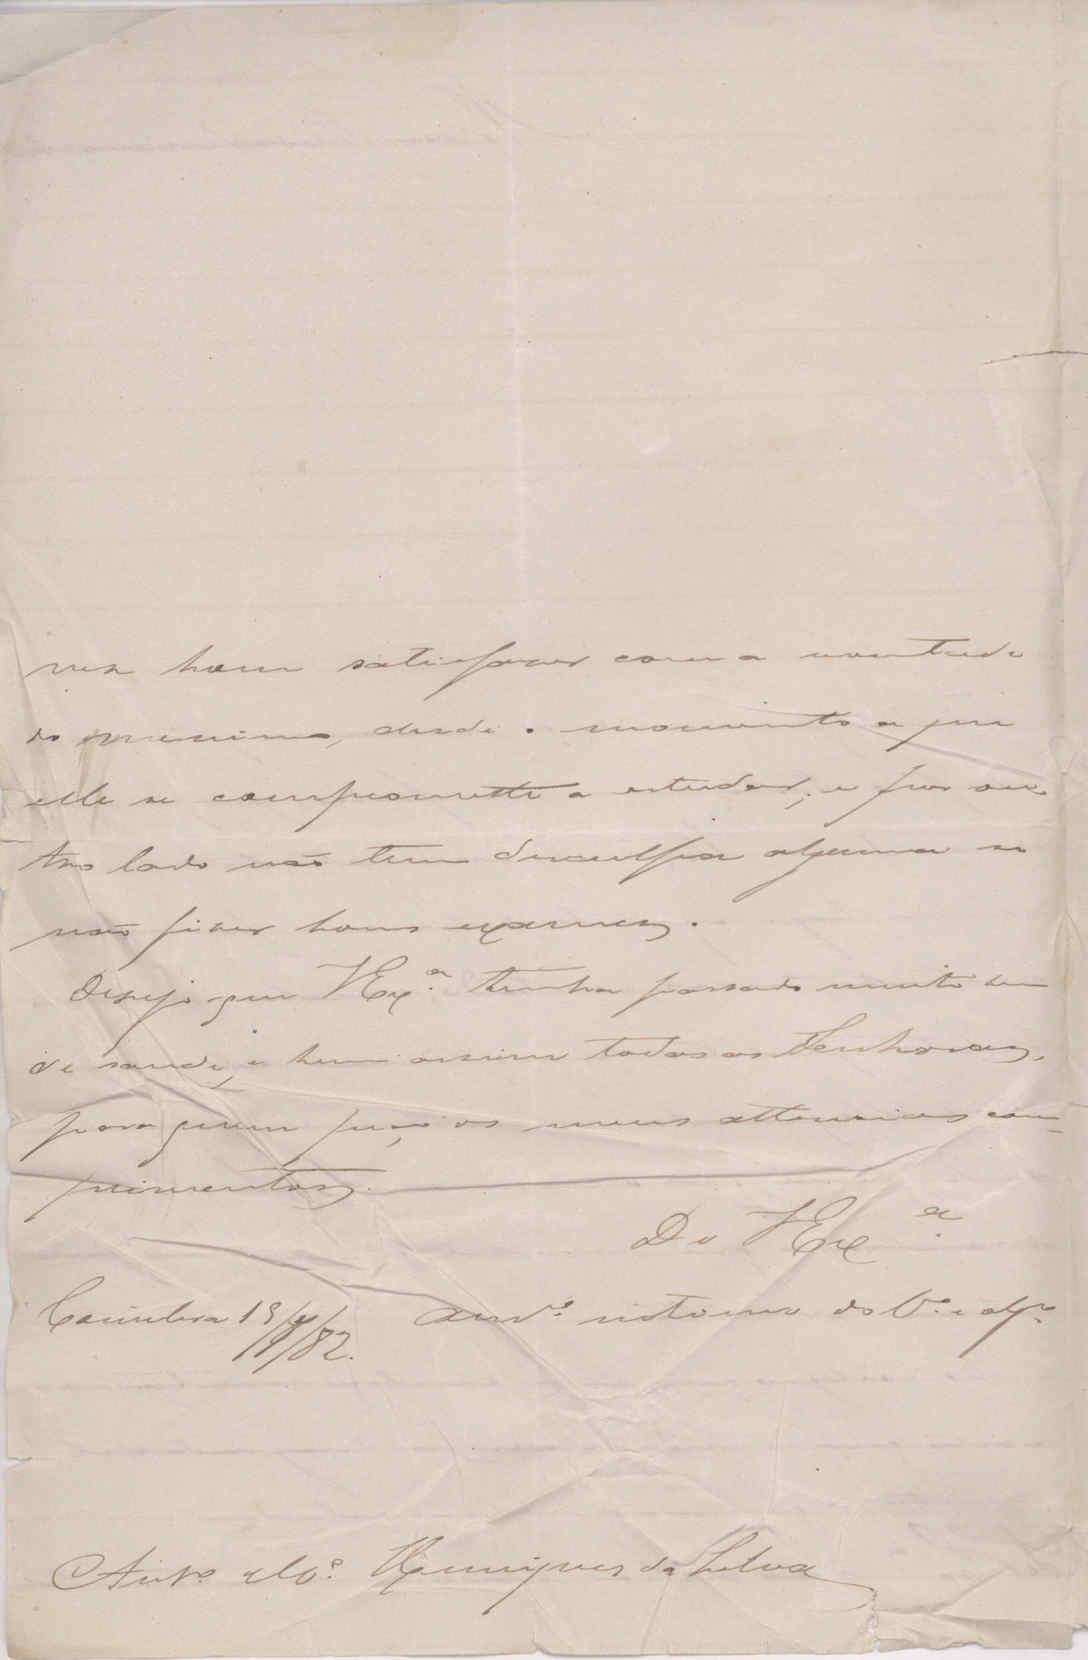 vez bom satisfazer com a vontade
do menino, desde o momento a que
elle se compromette a estudar; e por ou-
tro lado não tem desculpa alguma se
não fizer bons exames.
Desejo que VEx.ª tenha passado muito bem
de saude, e bem assim todas as Senhoras,
para quem peço os meus attenciosos com-
primentos.
De VEx.ª
Coimbra 19/4/82. am.º e obg.º
Ant.º Henriques da Silva